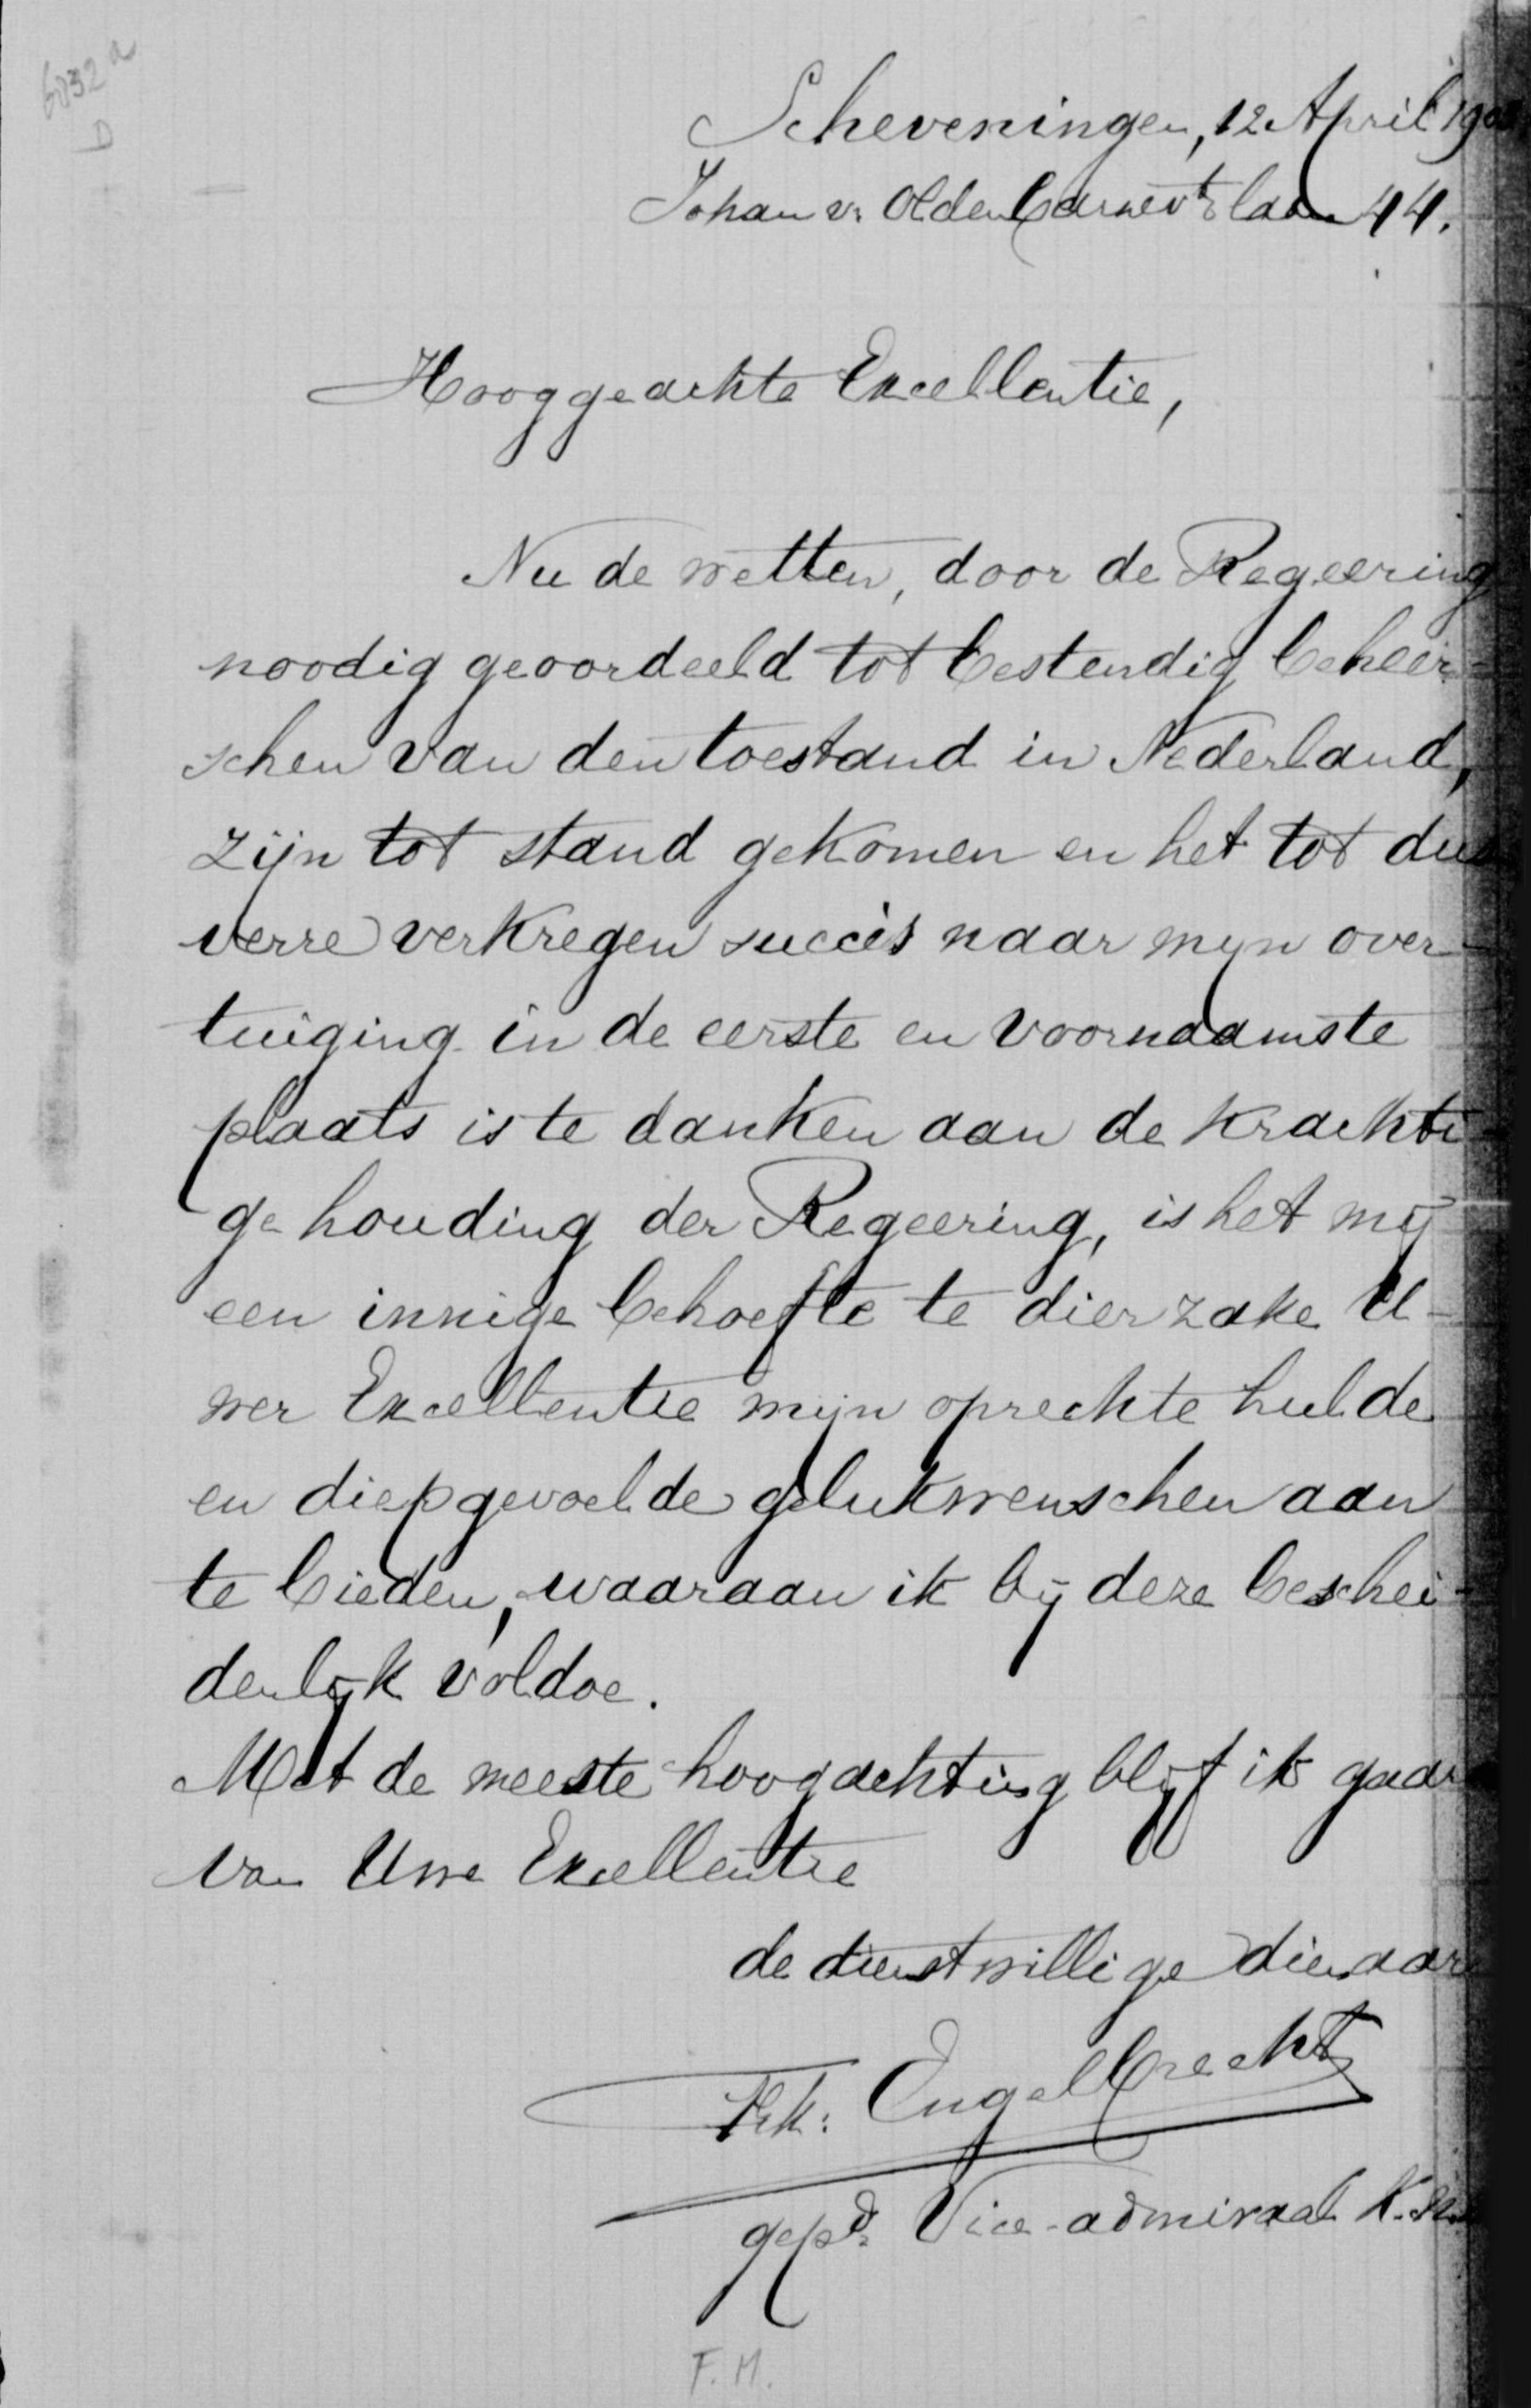 6032a
D
Scheveningen, 12 April 190
Johan v. Oldenbarnevts laan 44.
Hooggeachte Excellentie,
Nu de wetten, door de Regeering
noodig geoordeeld tot bestendig beheer-
schen van den toestand in Nederland,
zijn tot stand gekomen en het tot dus
verre verkregen succès naar mijn over-
tuiging in de eerste en voornaamste
plaats is te danken aan de krachti-
ge houding der Regeering, is het mij
een innige behoefte te dier zake U-
wer Excellentie mijn oprechte hulde
en diepgevoelde gelukwenschen aan
te bieden, waaraan ik bij deze beschei-
denlijk voldoe.
Met de meeste hoogachting blijf ik gaar
van Uwe Excellentie
de dienstwillige dienaar
Engelbrecht
gepd. Vice-admiraal K.
F.M.